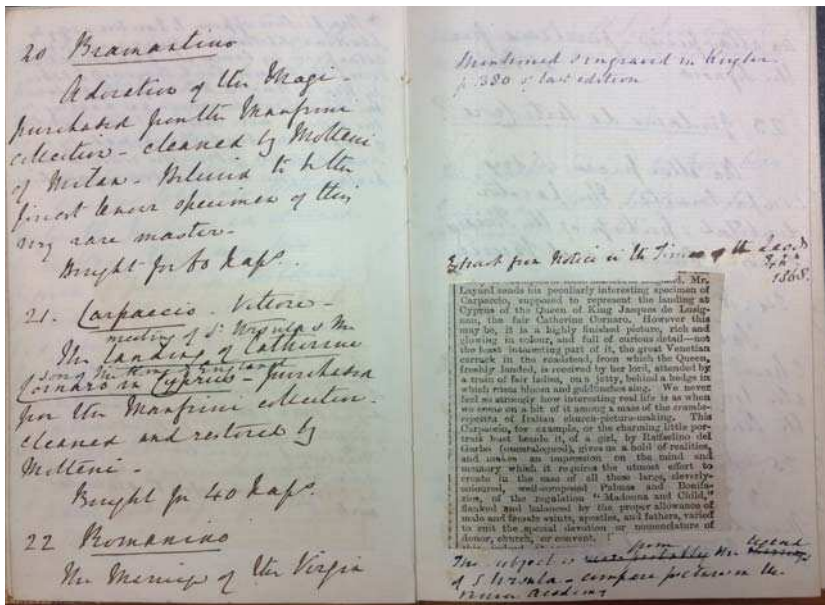 20 Bramantino
Adoration of the Magi -
purchased from the Manfrini
collection - cleaned by Molteni
of Milan - Believed to be the
finest known specimen of this
very rare master -
Bought for 60 Naps.
21. Carpaccio. Vittore -
meeting of St Ursula & the
The landing of Catherine
son of the King of England
Cornaro in Cyprus - purchased
from the Manfrini collection.
cleaned and restored by
Molteni -
Bought for 40 Naps.
22 Romanino
The Marriage of the Virgin
Mentioned & engraved in Kugler
p. 380 last edition
Extract from Notice in the Times of the Leeds
Exhn
1868.
Mr.
Layard sends his peculiarly interesting specimen of
Carpaccio, supposed to represent the landing at
Cyprus of the Queen of King Jasques de Lusig-
nan, the fair Catherine Cornaro. However this
may be, it is a highly finished picture, rich and
glowing in colour, and full of curious detail—not
the least interesting part of it, the great Venetian
carrack in the roadstead, from which the Queen,
freshly landed, is received by her lord, attended by
a train of fair ladies, on a jetty, behind a hedge in
which roses bloom and goldfinches sing. We never
feel so strongly how interesting real life is as when
we come on a bit of it among a mass of the crambe-
repetita of Italian church-picture-making. This
Carpaccio, for example, or the charming little por-
trait bust beside it, of a girl, by Raffaelino del
Garbo (uncatalogued), gives us a hold of realities,
and makes an impression on the mind and
memory which it requires the utmost effort to
create in the case of all these large, cleverly-
coloured, well-composed Palmas and Bonifa-
zios, of the regulation "Madonna and Child,"
flanked and balanced by the proper allowance of
male and female saints, apostles, and fathers, varied
to suit the special devotion or nomenclature of
donor, church, or convent.
from legend
The subject is more probably the
of S. Ursula - compare picture in the
Academy